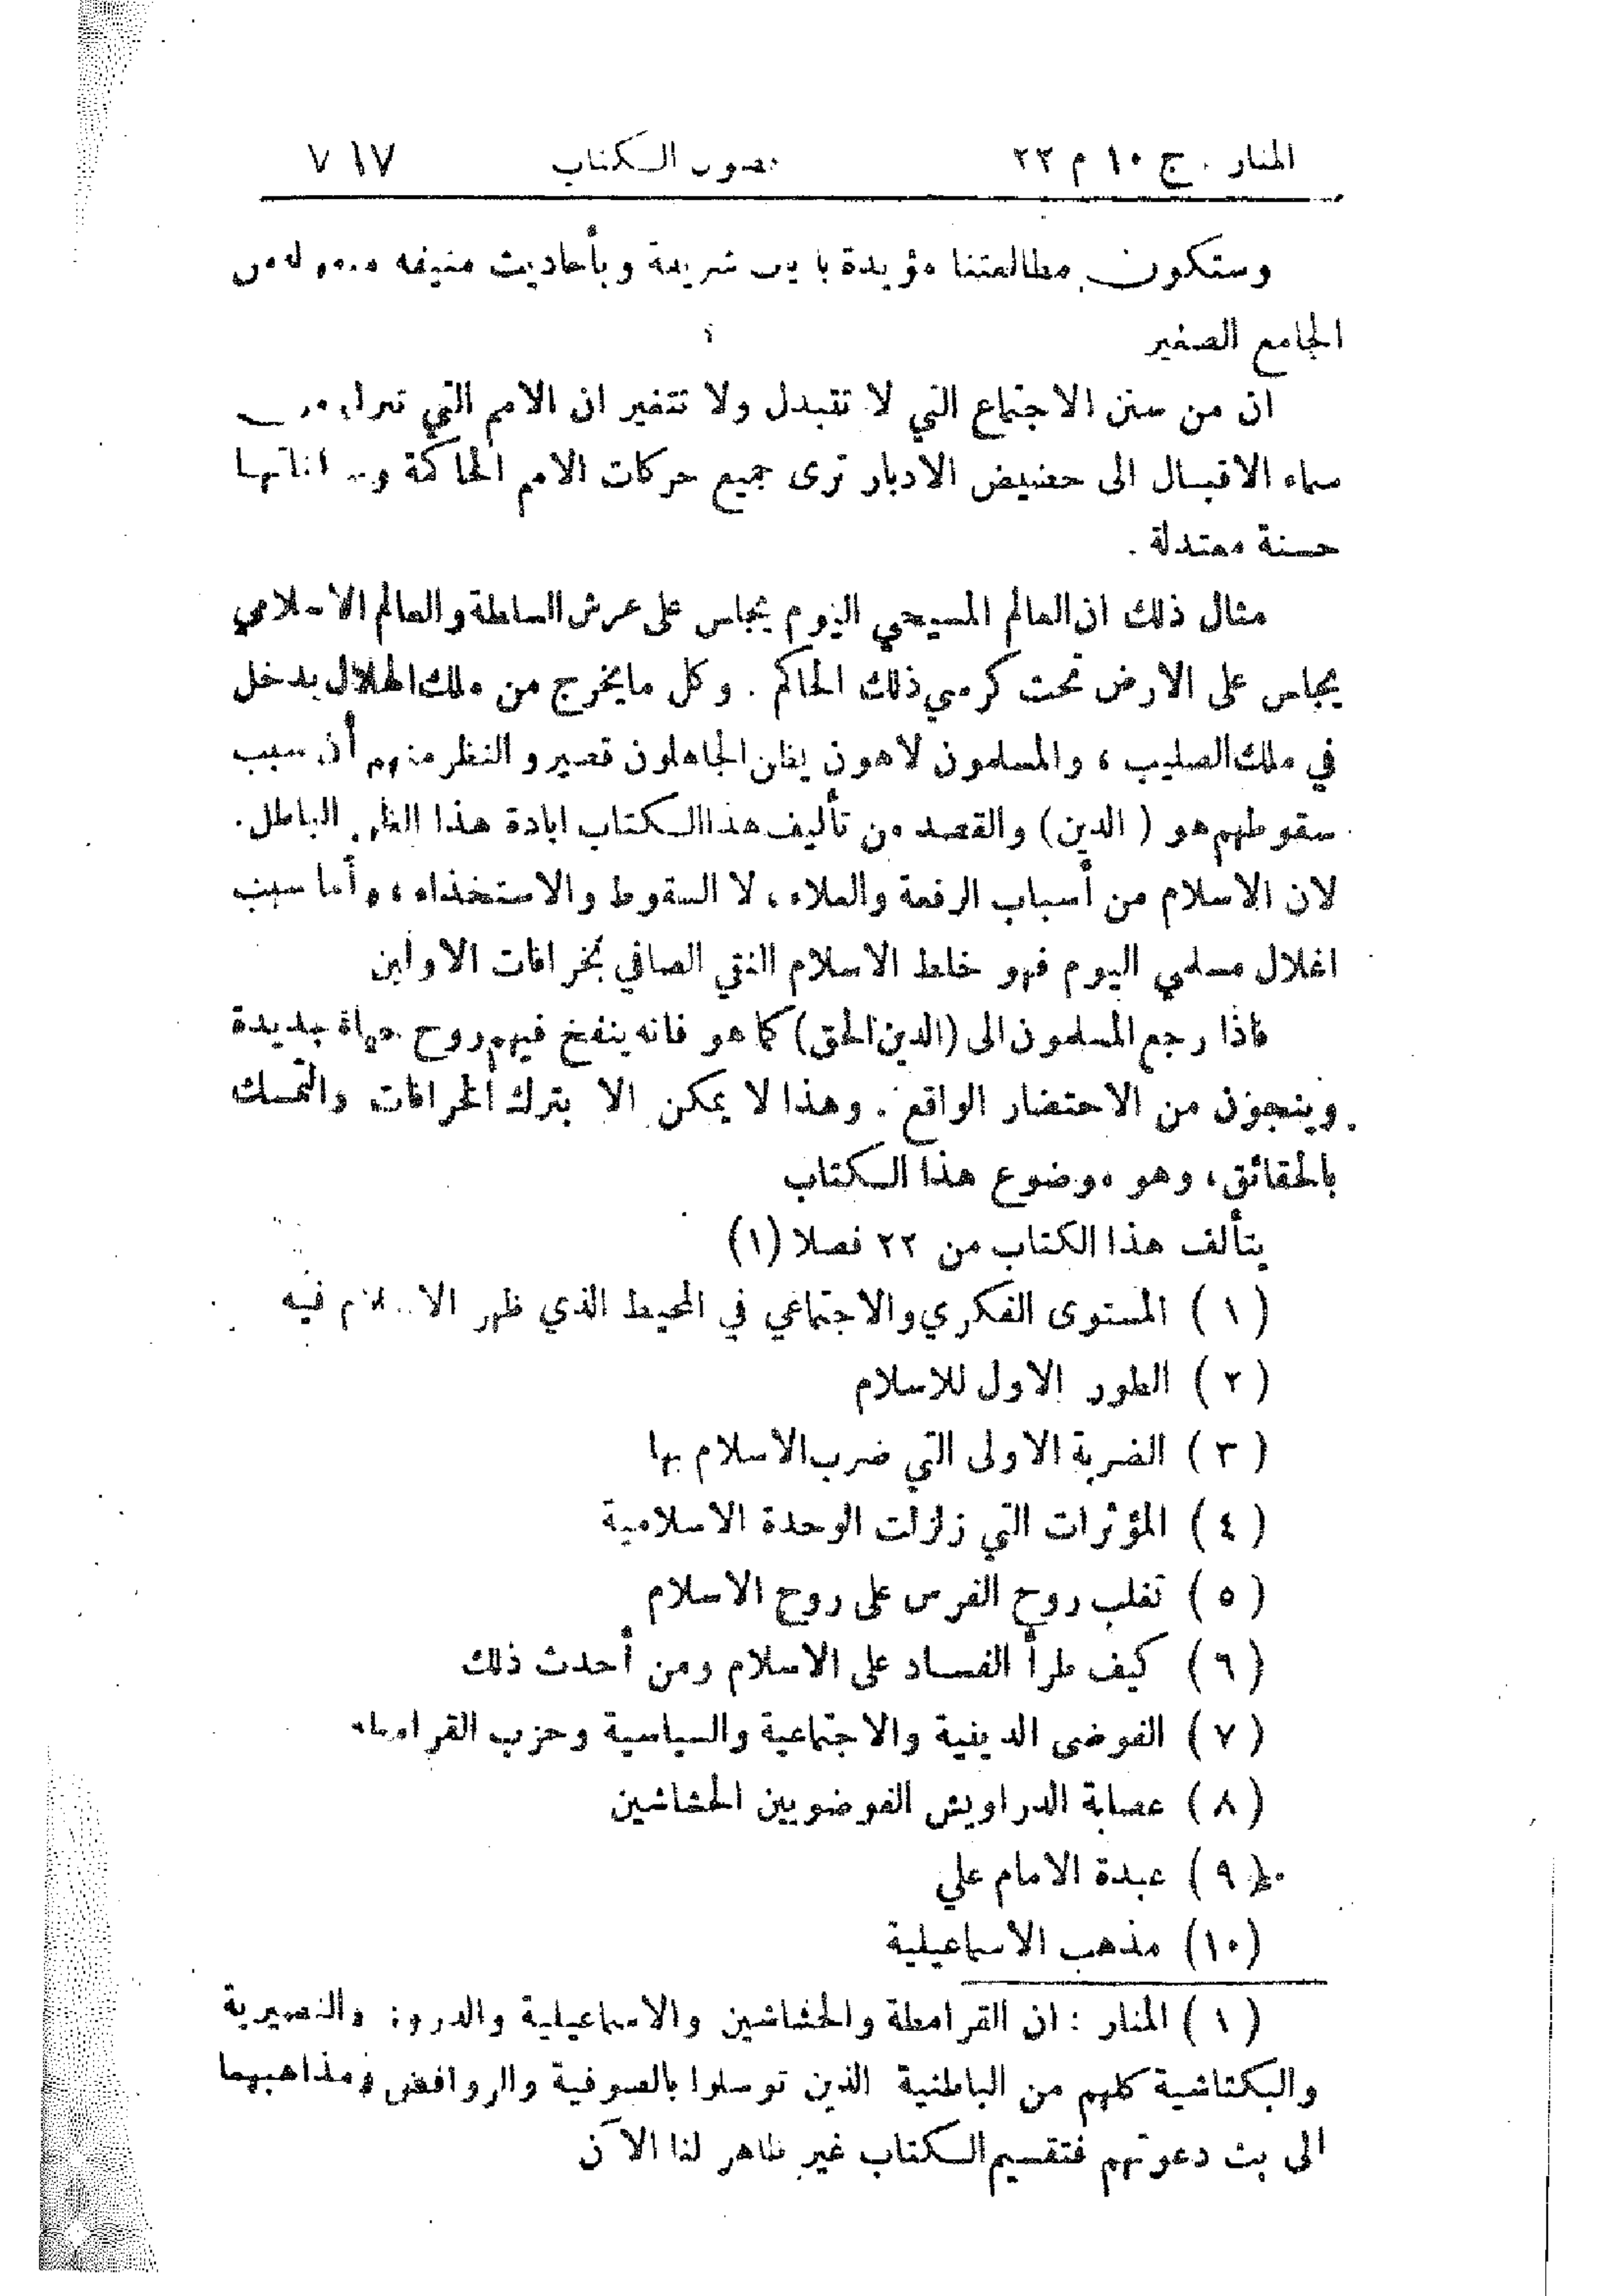 المنار . ج ١٠ م ٢٢ فصول الكتاب ٧١٧
وستكون مطالعتنا مؤيدة بآيات شريفة وبأحاديث منيفة من
الجامع الصغير
ان من سنن الاجتماع التي لا تتبدل ولا تتغير ان الامم التي من
سماء الاقبال الى حضيض الادبار ترى جميع حركات الامم الحاكمة
حسنة معتدلة .
مثال ذلك ان العالم المسيحي اليوم يجلس على عرش السلطة والعالم الاسلامي
يجلس على الارض تحت كرسي ذلك الحاكم . وكل مايخرج من ملك الهلال يدخل
في ملك الصليب ، والمسلمون لاهون يظن الجاهلون قصيرو النظر منهم أن سبب
سقوطهم هو ( الدين ) والقصد من تأليف هذا الكتاب ابادة هذا الظن الباطل .
لان الاسلام من أسباب الرفعة والعلاء ، لا السقوط والاستخذاء ، وأما سبب
اغلال مسلمي اليوم فهو خلط الاسلام النقي الصافي بخرافات الاولين
فاذا رجع المسلمون الى (الدين الحق) كما هو فانه ينفخ فيهم روح حياة جديدة
وينجون من الاحتضار الواقع . وهذا لا يمكن الا بترك الخرافات والتمسك
بالحقائق ، وهو موضوع هذا الكتاب
يتألف هذا الكتاب من ٢٢ فصلا (١)
( ١ ) المستوى الفكري والاجتماعي في المحيط الذي ظهر الاسلام فيه
( ٢ ) الطور الاول للاسلام
( ٣ ) الضربة الاولى التي ضرب الاسلام بها
( ٤ ) المؤثرات التي زلزلت الوحدة الاسلامية
( ٥ ) تغلب روح الفرس على روح الاسلام
( ٦ ) كيف طرأ الفساد على الاسلام ومن أحدث ذلك
( ٧ ) الفوضى الدينية والاجتماعية والسياسية وحزب القرامطة
( ٨ ) عصابة الدراويش الفوضويين الحشاشين
( ٩ ) عبدة الامام علي
(١٠) مذهب الاسماعيلية
( ١ ) المنار : ان القرامطة والحشاشين والاسماعيلية والدروز والنصيرية
والبكتاشية كلهم من الباطنية الذين توسلوا بالصوفية والروافض ومذاهبهما
الى بث دعوتهم فتقسيم الكتاب غير ظاهر لنا الآن